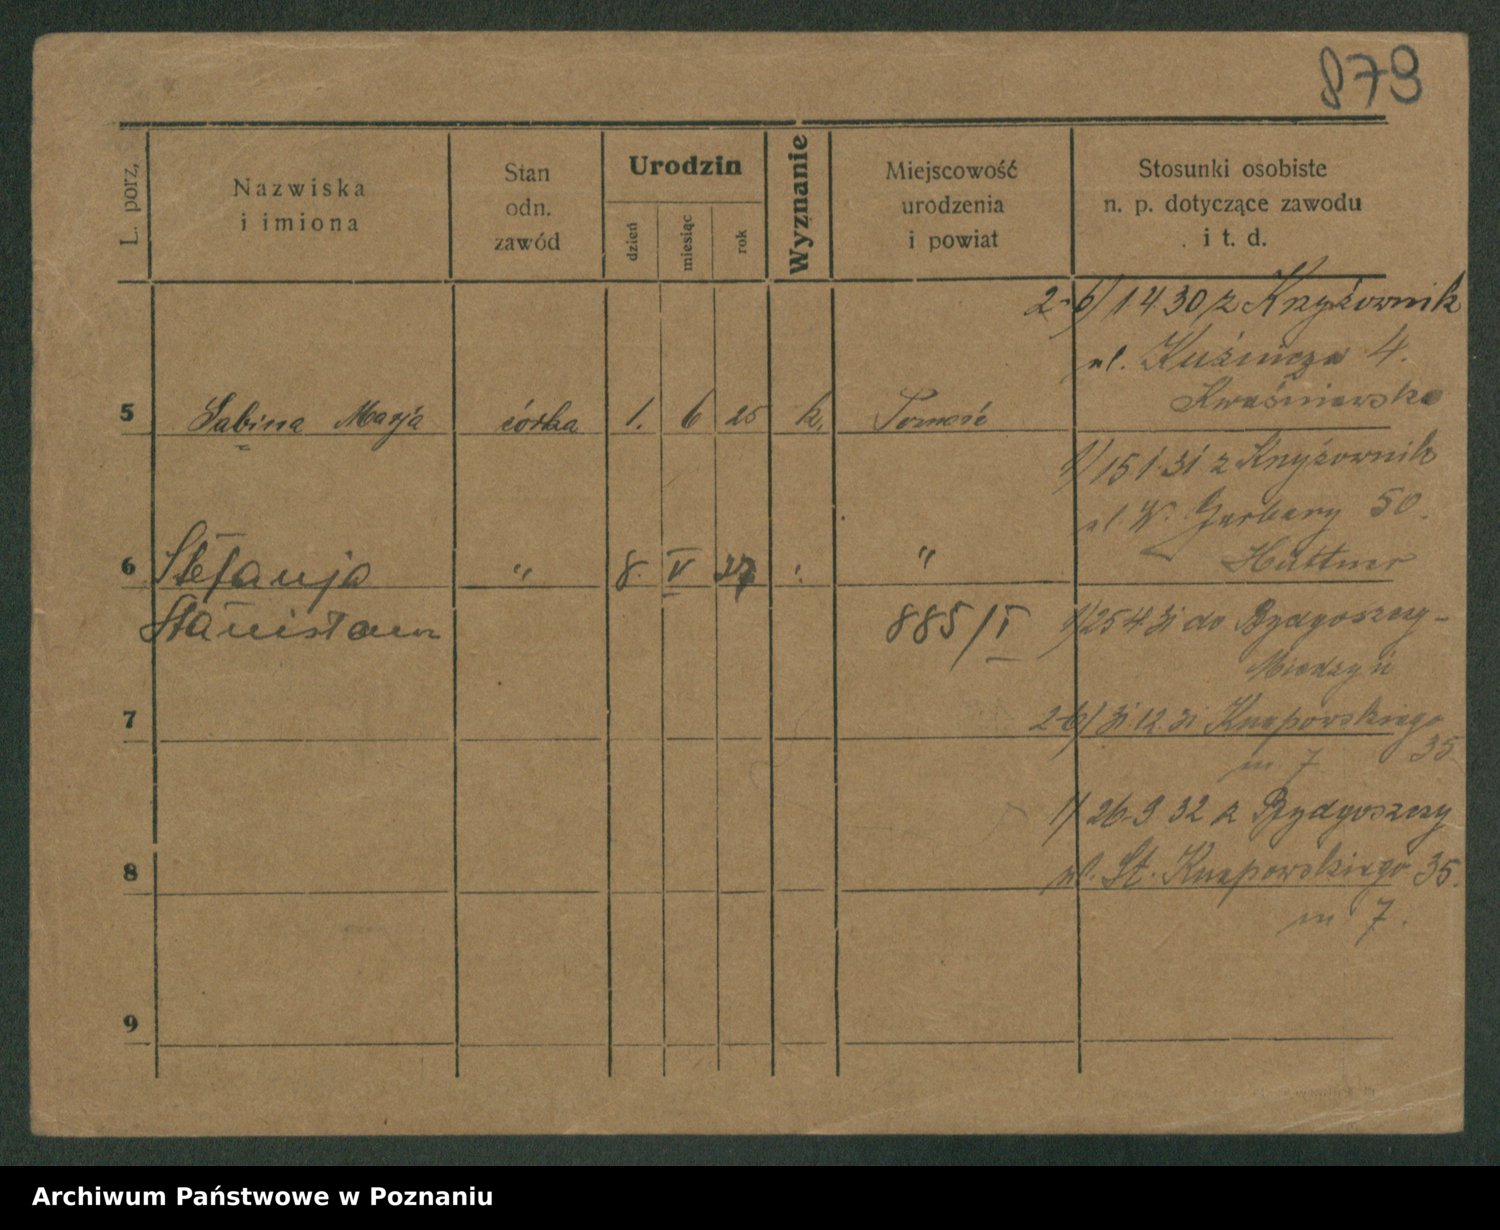 879
L. porz.
Nazwiska
i imiona
Stan
odn.
zawód
Urodzin
dzień
miesiąc
rok
Wyznanie
Miejscowość
urodzenia
i powiat
Stosunki osobiste
n. p. dotyczące zawodu
i t. d.
2-6/ 1 4 30 z Krzyżownik
ul. Kuźnicza 4.
Kwaśniewska
5 Sabina Marja córka 1. 6 25 k. Poznań
1/ 15 1 31 z Krzyżownik
ul W. Garbary 50.
Huttner
6 Stefanja " 8. V 27 " "
Stanisława
885/I
1/ 25 4 31 do Bydgoszczy-
Miedzyń
7
2-6/ 31 12 31 Knapowskiego
35
m 7
1/ 26 9 32 z Bydgoszczy
8
ul. St. Knapowskiego 35.
m 7.
9
Archiwum Państwowe w Poznaniu